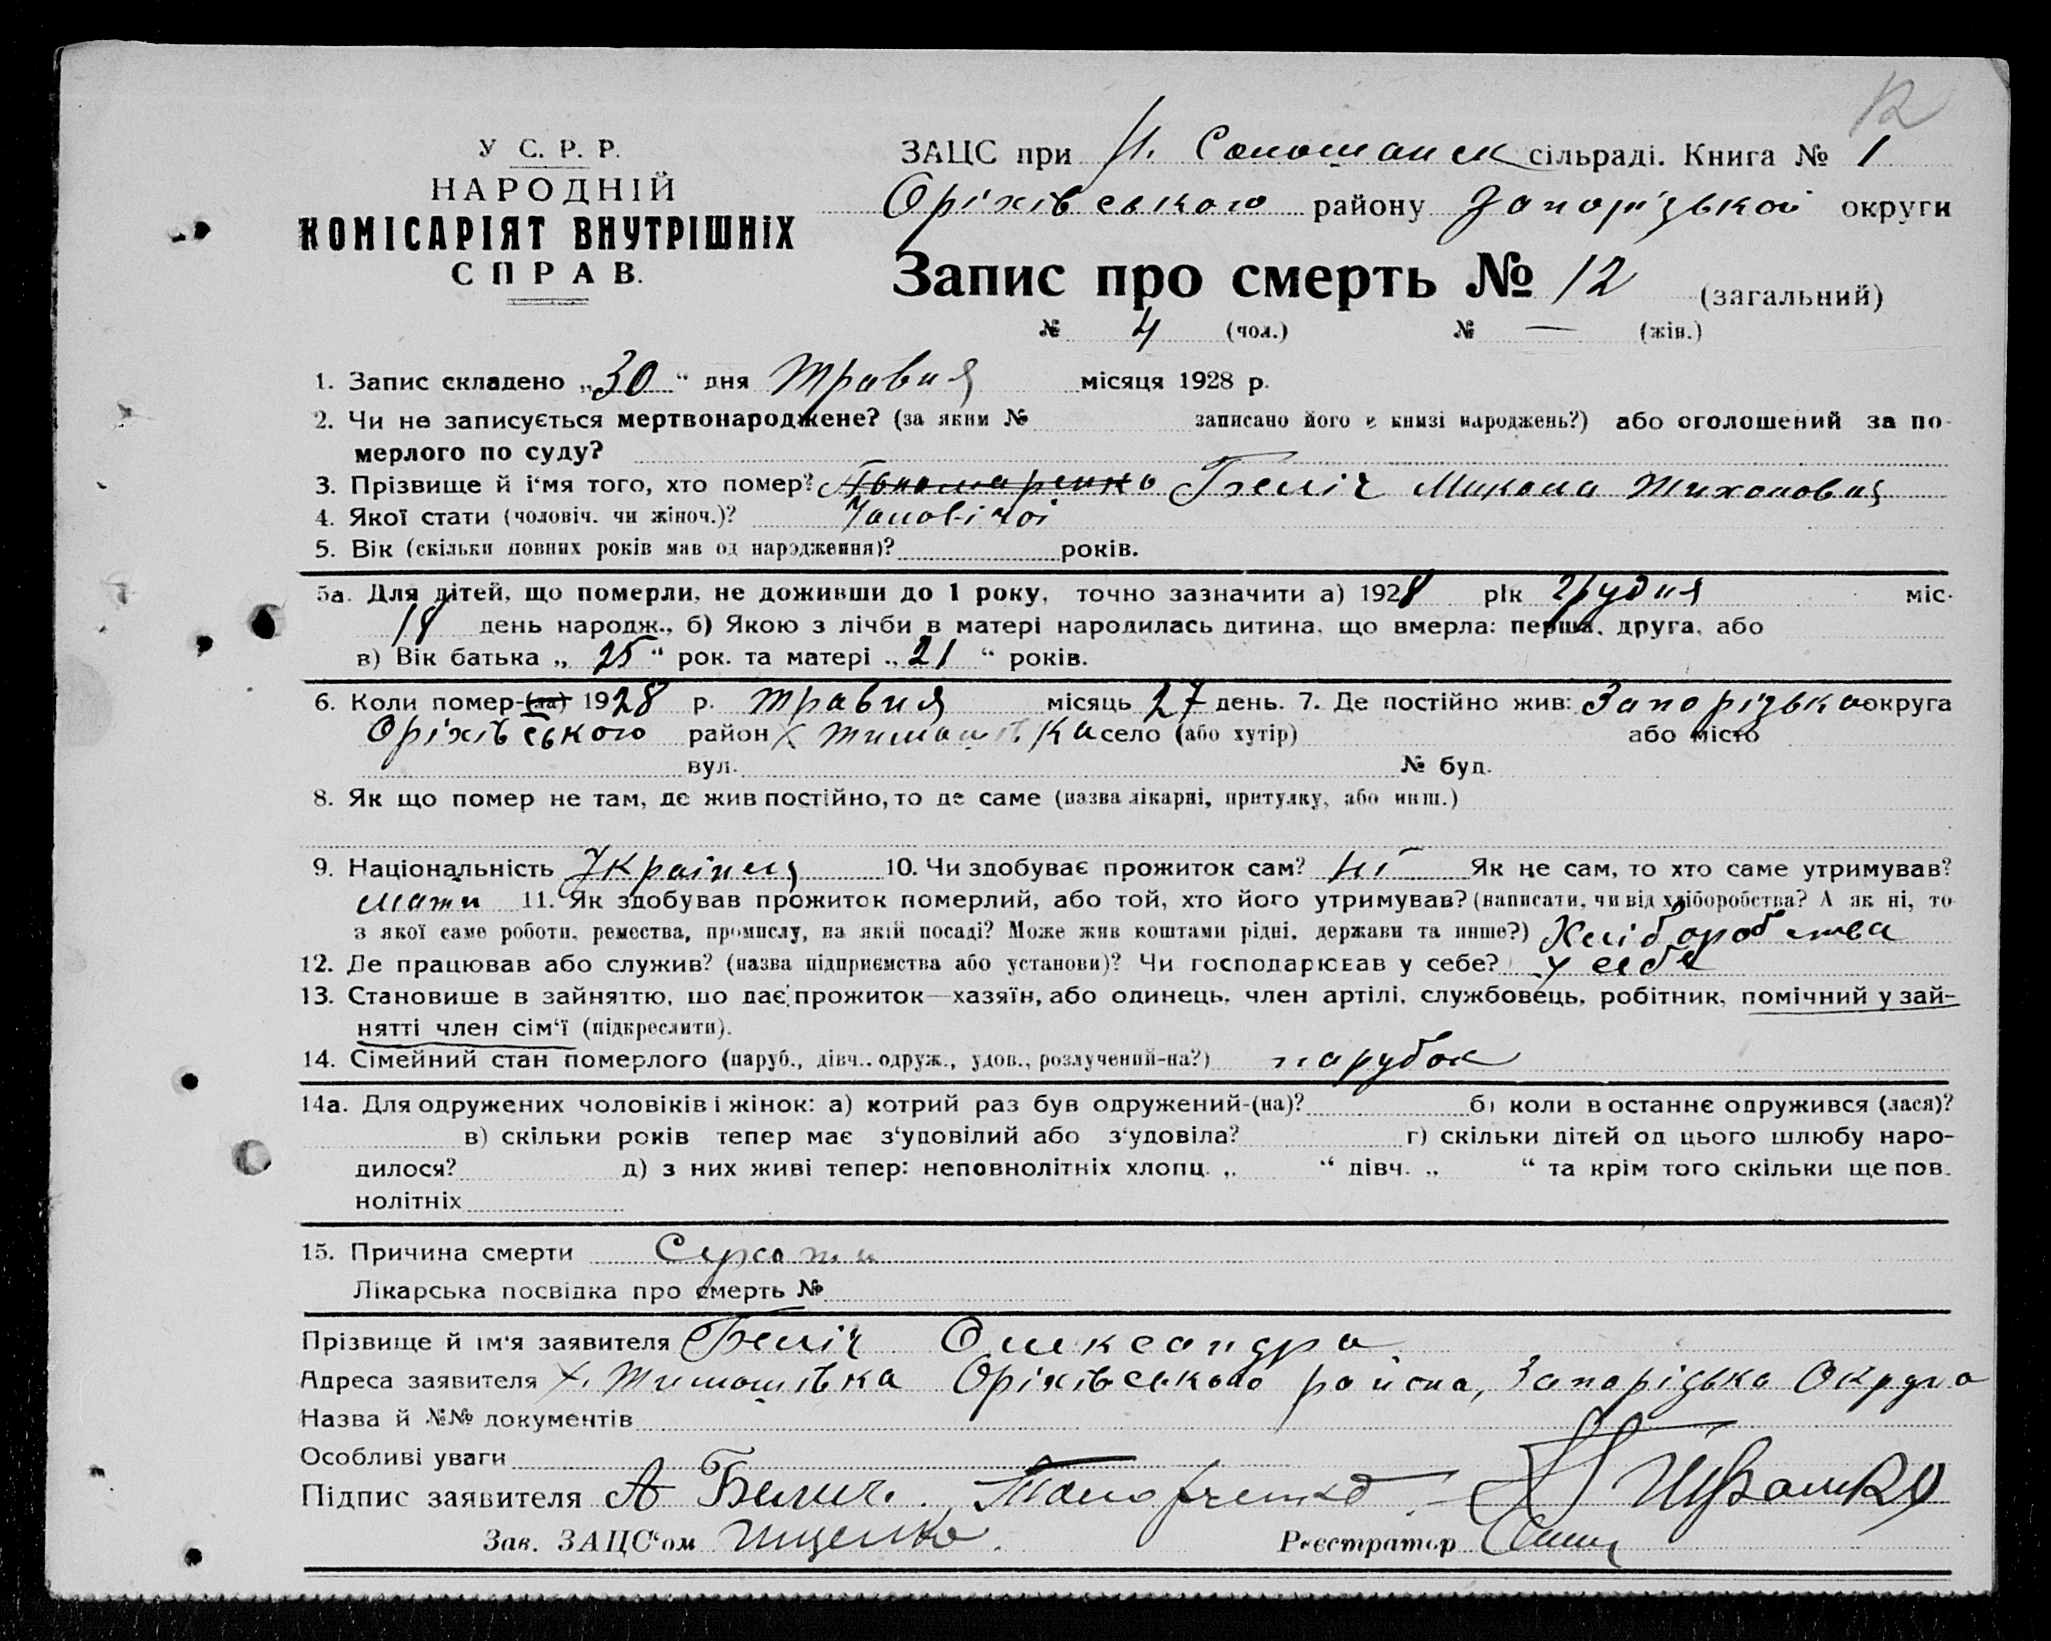 12
У С. Р. Р.
НАРОДНІЙ
КОМІСАРІЯТ ВНУТРІШНІХ
СПРАВ.
ЗАЦС при Н. Солошанск сільраді. Книга № 1
Оріхівського району Запорізькой округи
Запис про смерть № 12 (загальний)
№ 4 (чол.) № — (жін.)
1. Запис складено „30“ дня травня місяця 1928 р.
2. Чи не записується мертвонароджене? (за яким № записано його в книзі народжень?) або оголошений за по-
мерлого по суду?
3. Прізвище й і‘мя того, хто помер? Пономаренко Беліч Микола Тихонович
4. Якої стати (чоловіч. чи жіноч.)? Чоловічої
5. Вік (скільки повних років мав од народження)? років.
5а. Для дітей, що померли, не доживши до 1 року, точно зазначити а) 1928 рік грудня міс.
18 день народж., б) Якою з лічби в матері народилась дитина, що вмерла: перша, друга, або
в) Вік батька „25“ рок. та матері „21“ років.
6. Коли помер-(ла) 1928 р. травня місяць 27 день. 7. Де постійно жив: Запорізька округа
Оріхівського район х Тимошівка село (або хутір) або місто
вул. № буд.
8. Як що помер не там, де жив постійно, то де саме (назва лікарні, притулку, або инш.)
9. Національність Українец 10. Чи здобуває прожиток сам? ні Як не сам, то хто саме утримував?
мати 11. Як здобував прожиток померлий, або той, хто його утримував? (написати, чи від хліборобства? А як ні, то
з якої саме роботи, ремества, промислу, на якій посаді? Може жив коштами рідні, держави та инше?) Хліборобства
12. Де працював або служив? (назва підприємства або установи)? Чи господарював у себе? у себе
13. Становище в зайняттю, що дає прожиток—хазяїн, або одинець, член артілі, службовець, робітник, помічний у зай-
нятті член сім‘ї (підкреслити).
14. Сімейний стан померлого (паруб., дівч., одруж., удов., розлучений-на?) парубок
14а. Для одружених чоловіків і жінок: а) котрий раз був одружений-(на)? б) коли востаннє одружився (лася)?
в) скільки років тепер має з‘удовілий або з‘удовіла? г) скільки дітей од цього шлюбу наро-
дилося? д) з них живі тепер: неповнолітніх хлопц. „ “ дівч. „ “ та крім того скільки ще пов.
нолітніх
15. Причина смерти Сухоти
Лікарська посвідка про смерть №
Прізвище й ім‘я заявителя Беліч Олександра
Адреса заявителя х. Тимошівка Оріхівського района, Запорізька Округа
Назва й №№ документів
Особливі уваги
Підпис заявителя А Белич.
Зав. ЗАЦС‘ом Ищенко. Реєстратор